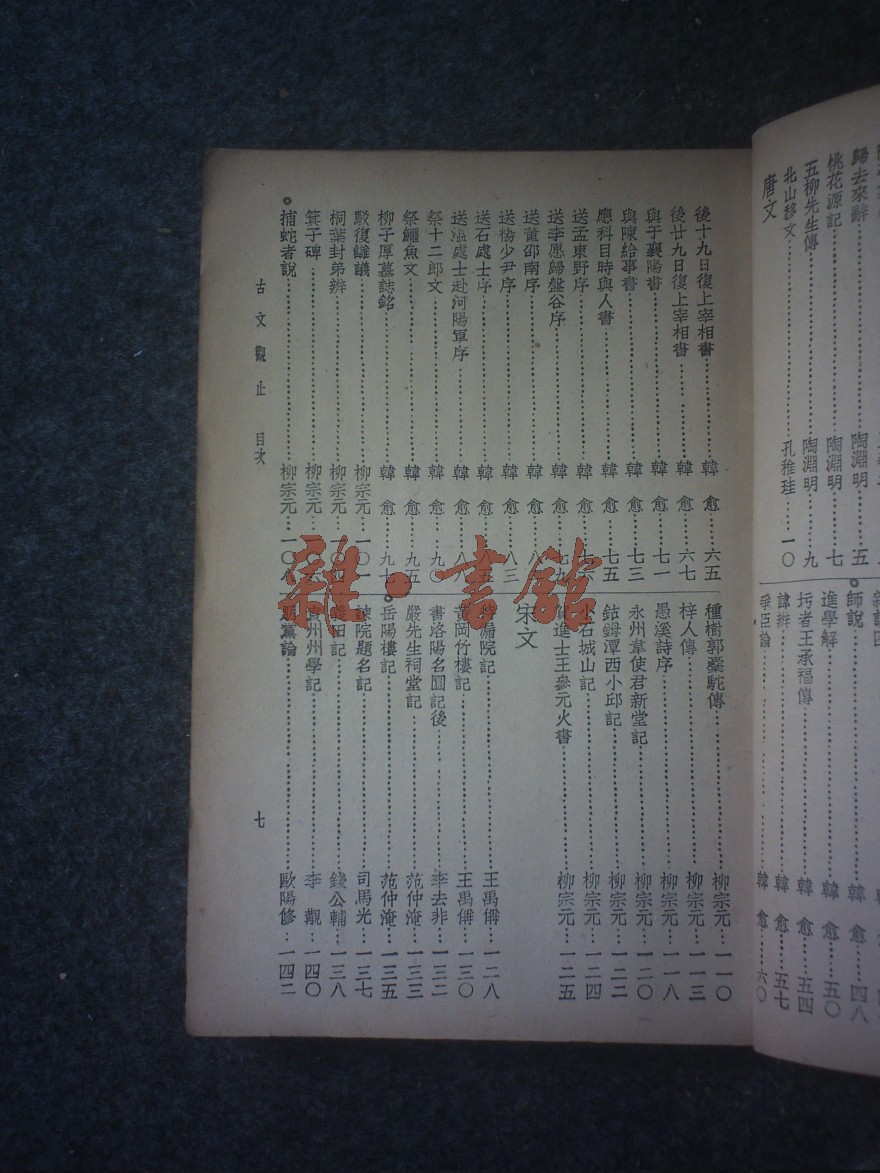 歸去來辭……陶淵明…五
桃花源記……陶淵明…七
五柳先生傳……陶淵明…九
北山移文……孔稚珪…一〇
唐文
師說……韓 愈…四八
進學解……韓 愈…五〇
圬者王承福傳……韓 愈…五四
諱辨……韓 愈…五七
爭臣論……韓 愈…六〇
後十九日復上宰相書……韓 愈…六五
後廿九日復上宰相書……韓 愈…六七
與于襄陽書……韓 愈…七一
與陳給事書……韓 愈…七三
應科目時與人書……韓 愈…七五
送孟東野序……韓 愈…七六
送李愿歸盤谷序……韓 愈…七九
送董邵南序……韓 愈…八
送楊少尹序……韓 愈…八三
送石處士序……韓 愈…八五
送溫處士赴河陽軍序……韓 愈…八八
祭十二郎文……韓 愈…九〇
祭鱷魚文……韓 愈…九五
柳子厚墓誌銘……韓 愈…九七
駁復讎議……柳宗元…一〇一
桐葉封弟辨……柳宗元…一〇四
箕子碑……柳宗元…一〇六
捕蛇者說……柳宗元…一〇八
種樹郭橐駝傳……柳宗元…一一〇
梓人傳……柳宗元…一一三
愚溪詩序……柳宗元…一一八
永州韋使君新堂記……柳宗元…一二〇
鈷鉧潭西小邱記……柳宗元…一二二
小石城山記……柳宗元…一二四
賀進士王參元火書……柳宗元…一二五
宋文
待漏院記……王禹偁…一二八
黃岡竹樓記……王禹偁…一三〇
書洛陽名園記後……李去非…一三二
嚴先生祠堂記……范仲淹…一三三
岳陽樓記……范仲淹…一三五
諫院題名記……司馬光…一三七
義田記……錢公輔…一三八
袁州州學記……李 覯…一四〇
朋黨論……歐陽修…一四二
古文觀止 目次
七
雜·書館